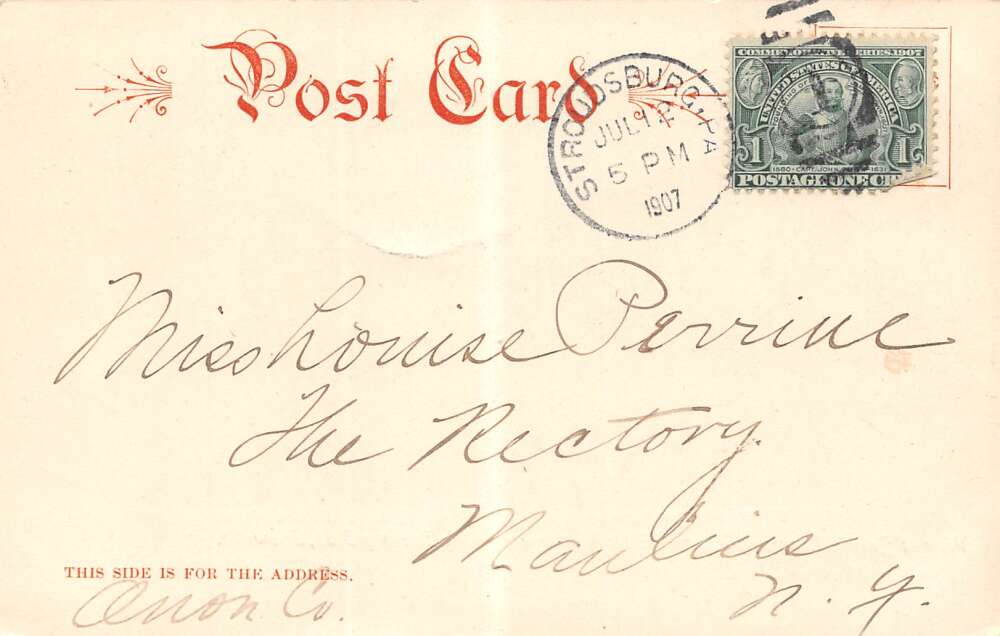 Post Card
STROUDSBURG, PA
JUL 12
5 PM
1907
COMMEMORATIVE SERIES, 1907
UNITED STATES OF AMERICA
1 1
1580 CAPT. JOHN 1631
POSTAGE ONE
Miss Louise Perrine
The Rectory
Manlius
N. Y.
THIS SIDE IS FOR THE ADDRESS.
Onon. Co.